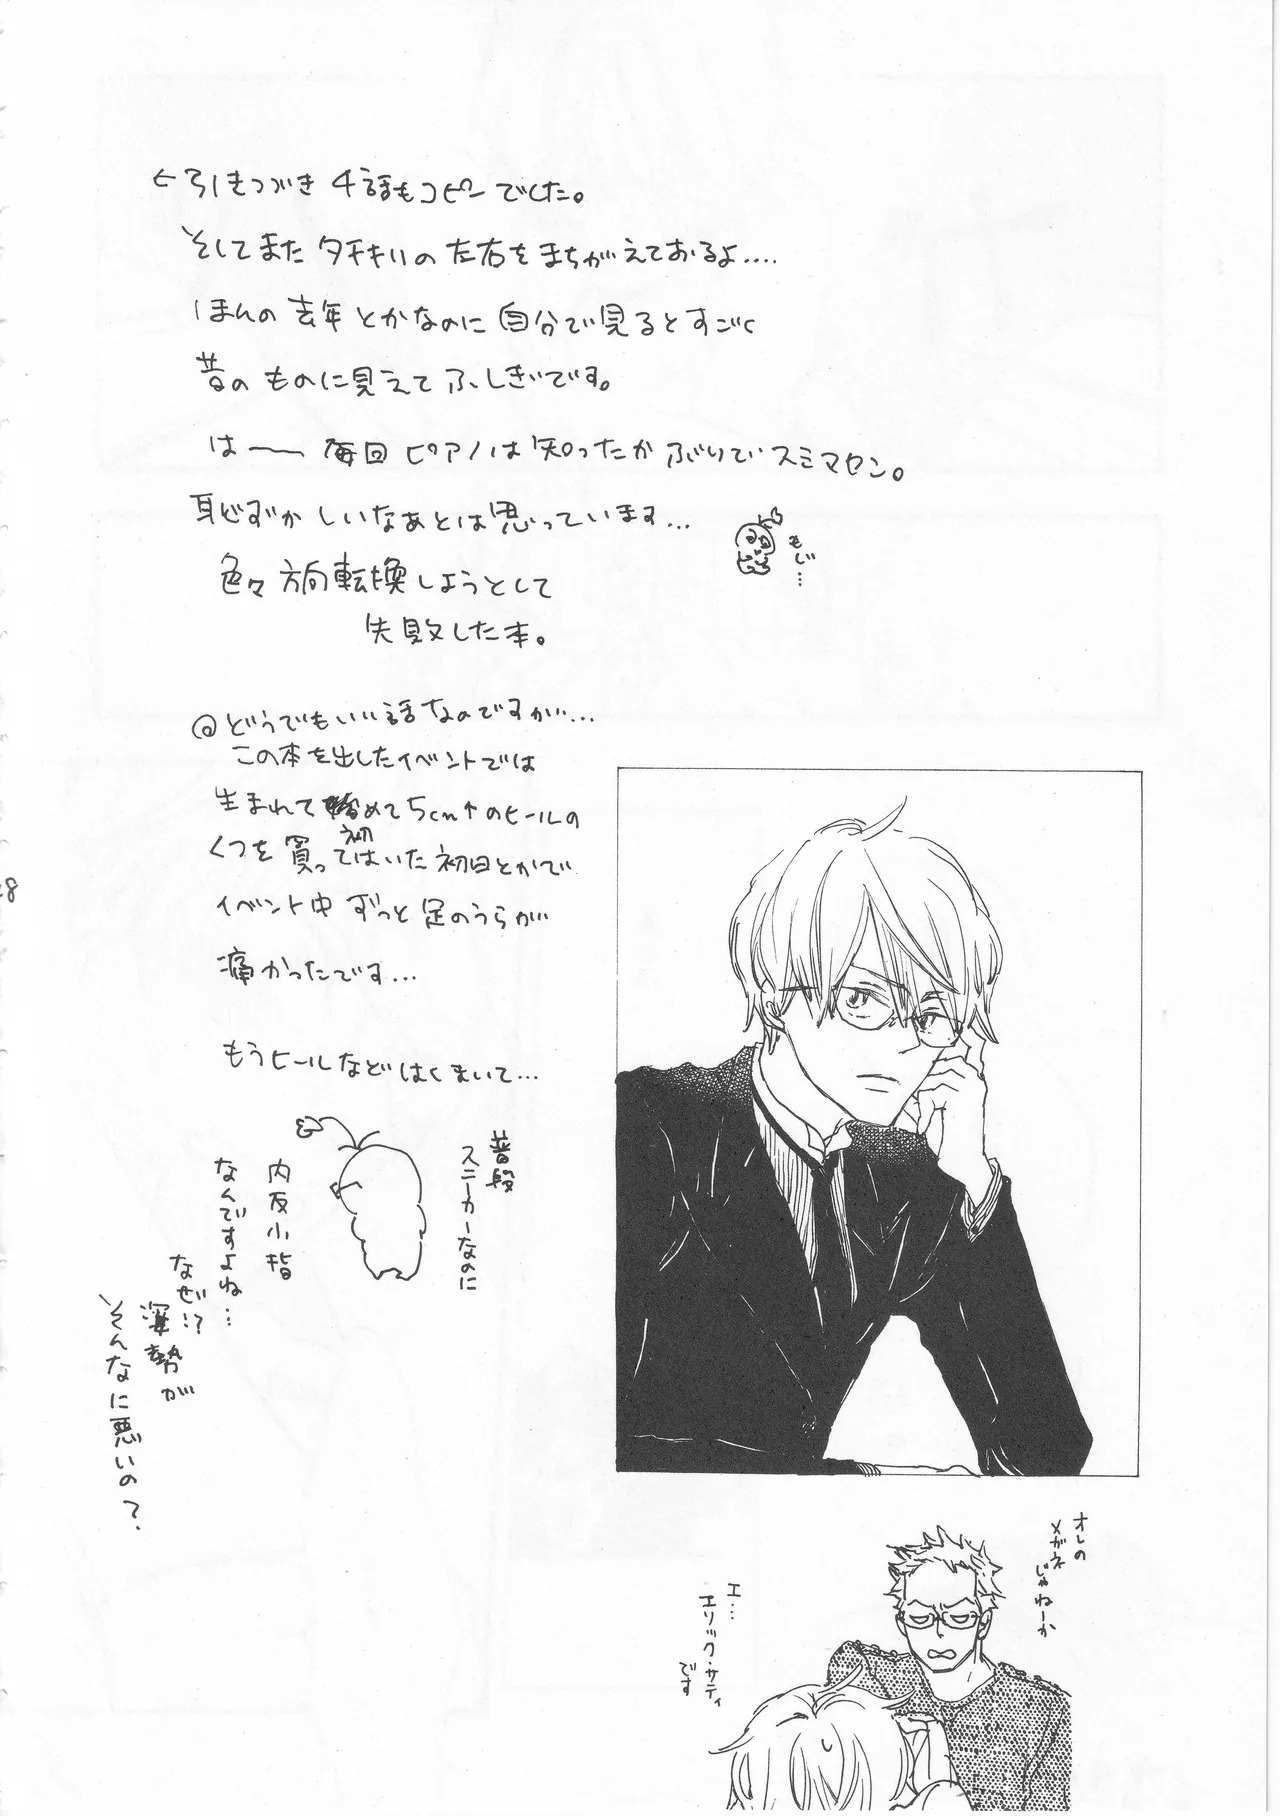 ←引きつづき4話もコピーでした。
そしてまたタチキリの左右をまちがえておるよ....
ほんの去年とかなのに自分で見るとすごく
昔のものに見えてふしぎです。
は〜〜 毎回ピアノは知ったかぶりでスミマセン。
恥ずかしいなあとは思っています...
もじ...
色々方向転換しようとして
失敗した本。
@どうでもいい話なのですが...
この本を出したイベントでは
生まれて初めて5cm↑のヒールの
くつを買ってはいた初日とかで
イベント中ずっと足のうらが
痛かったです...
もうヒールなどはくまいて...
普段
スニーカーなのに
内反小指
なんですよね...
なぜ!?
姿勢が
そんなに悪いの?
28
オレの
メガネ
じゃねーか
エ...
エリック・サティ
です